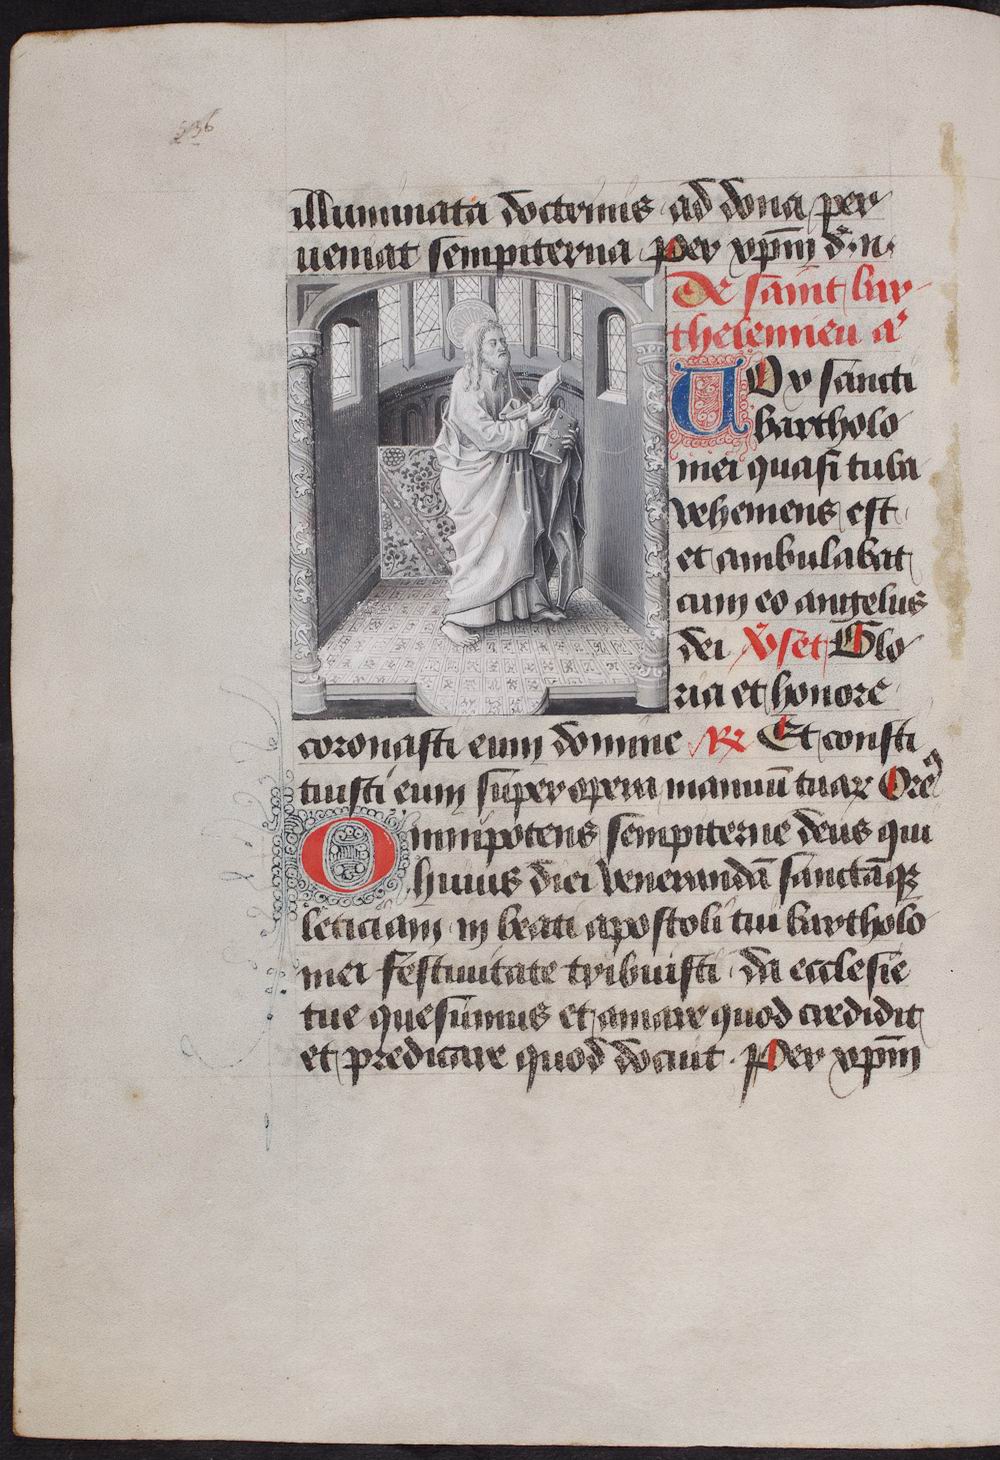 illuminata doctrinis ad dona per
ueniat sempiterna Per xpm d. n.
De saint bar
thelemieu a͞
Uox sancti
bartholo
mei quasi tuba
vehemens est
et ambulabat
cum eo angelus
dei V̉set Glo
ria et honore
coronasti eum domine R̷ Et consti
tuisti eum super opera manuū tuaꝝ Orē
Omnipotens sempiterne deus qui
huius diei venerandā sanctāqꝫ
leticiam in beati apostoli tui bartholo
mei festiuitate tribuisti da ecclesie
tue quesumus et amare quod credidit
et predicare quod docuit. Per xpm